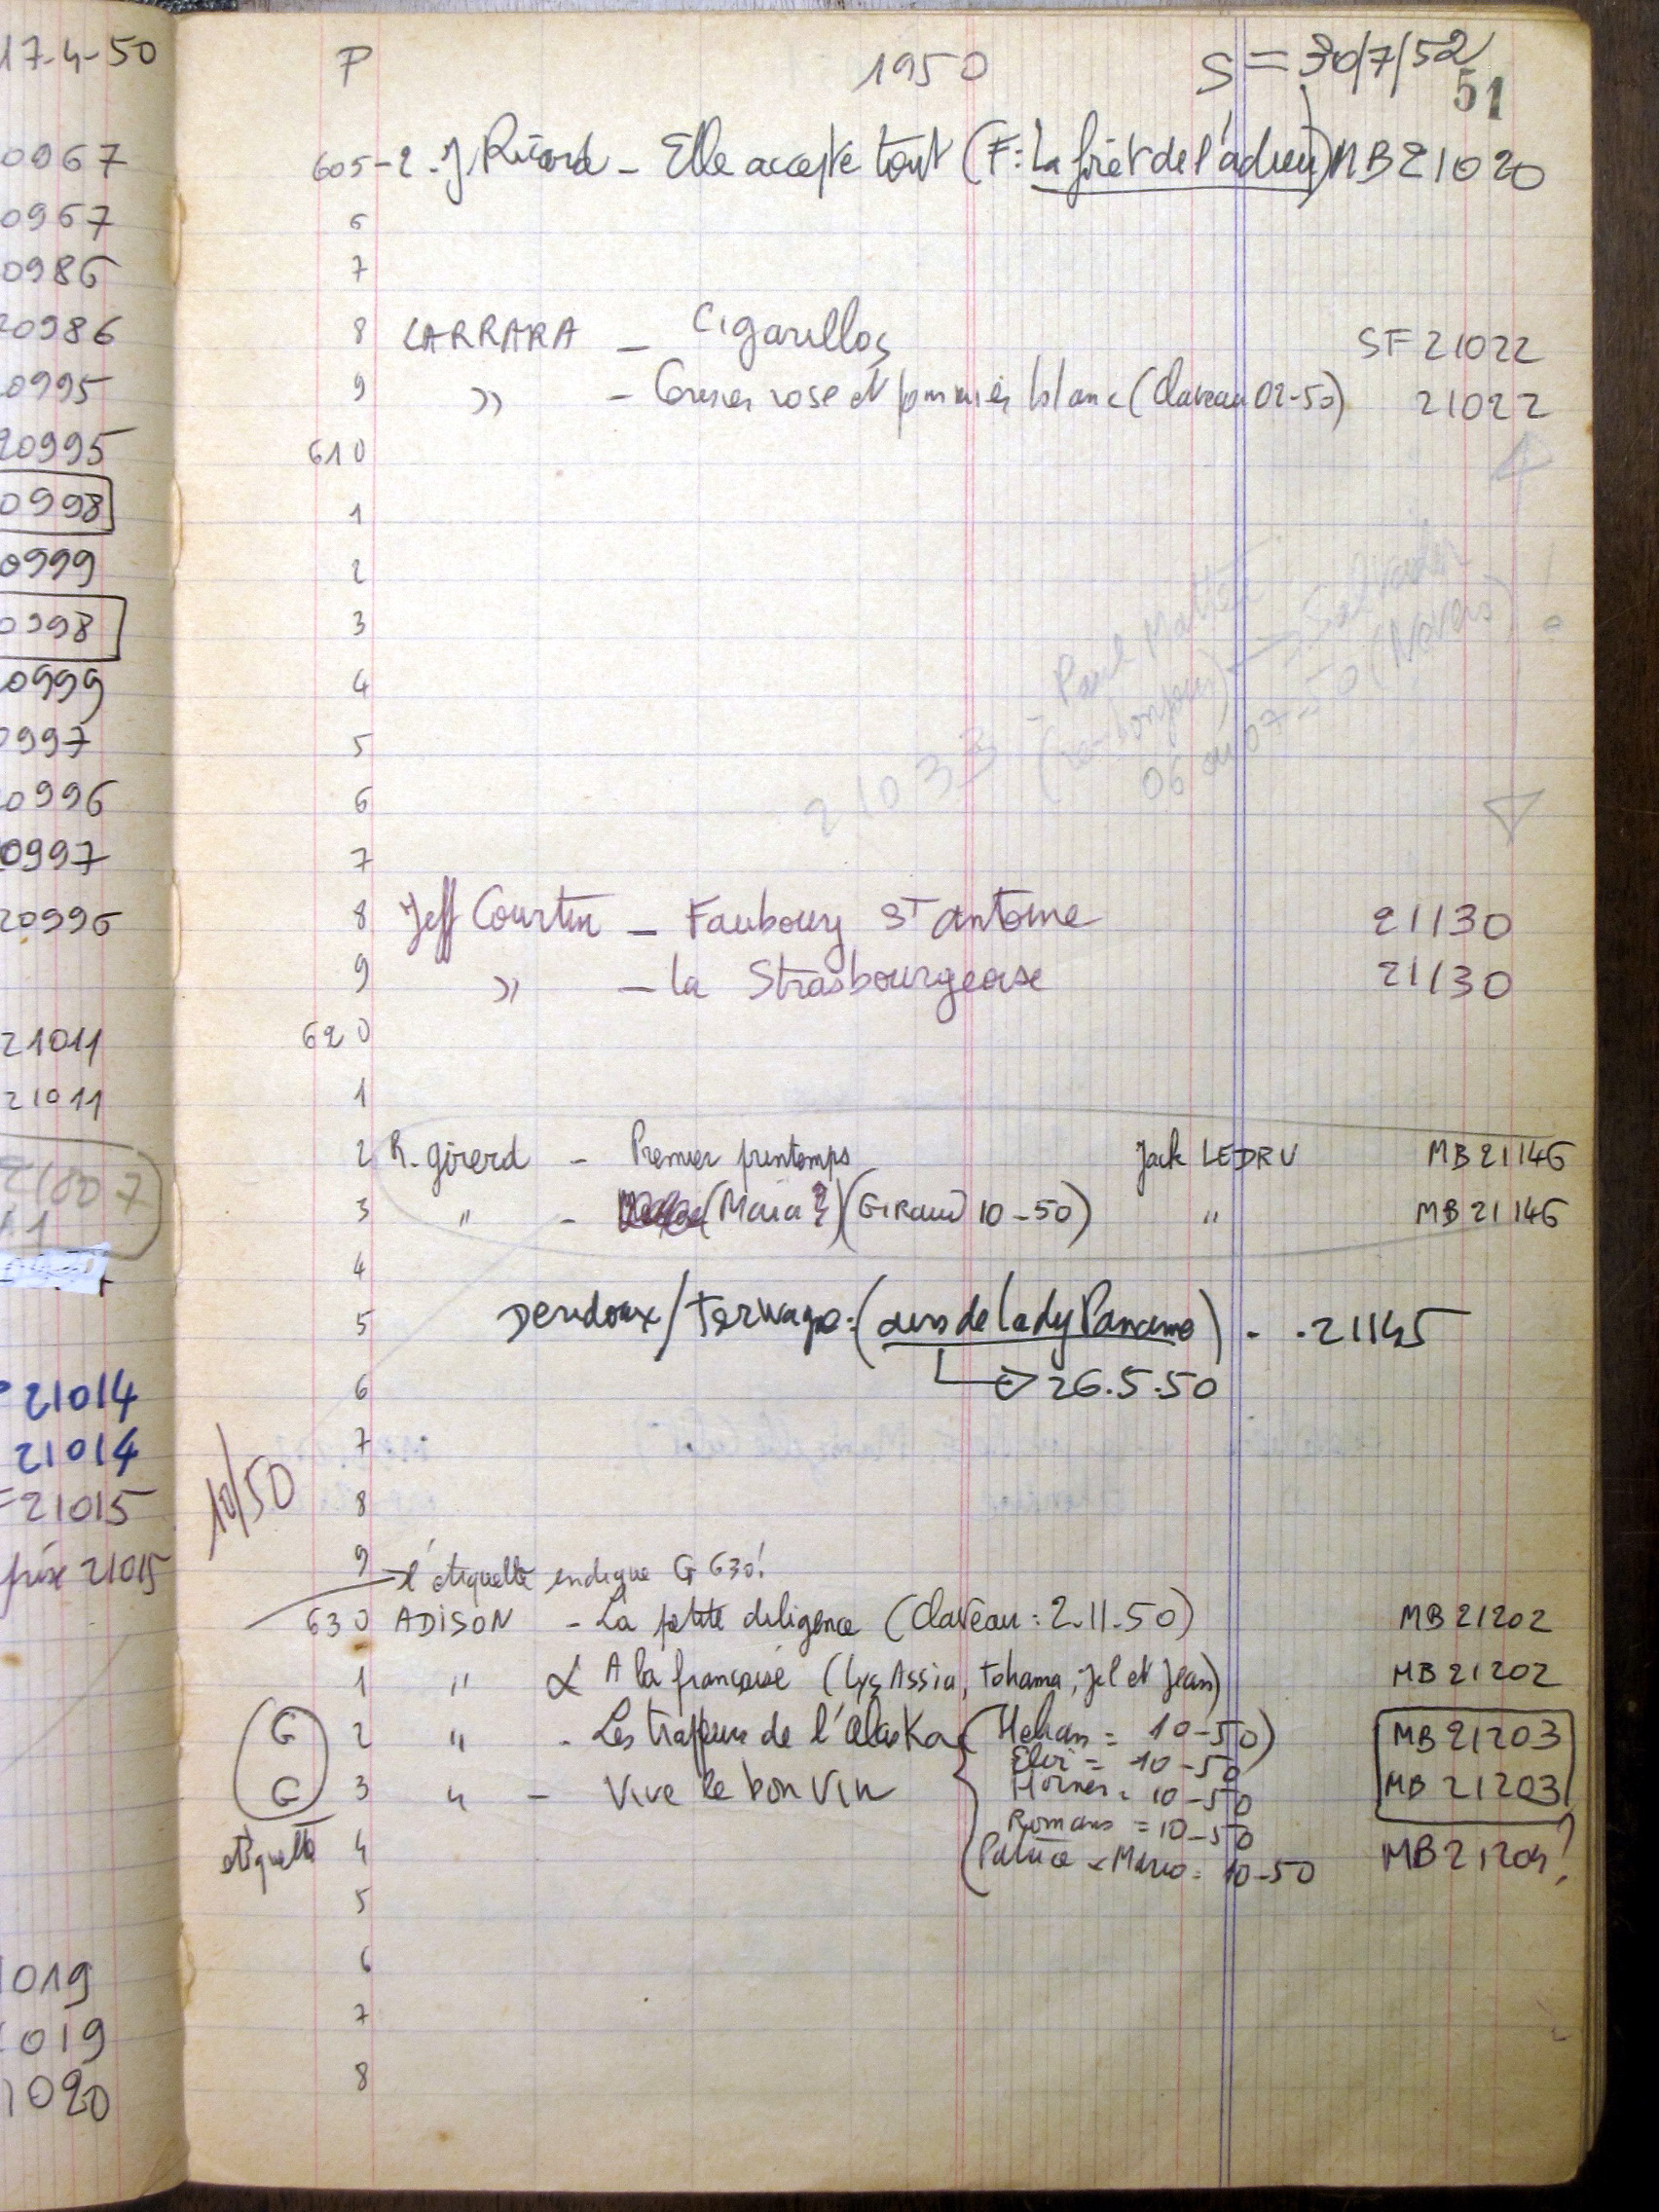 17-4-50
P 1950 S = 30/7/52
51
0967
605-2 - J. Ricard - Elle accepte tout (F: La forêt de l'adieu) MB 21020
0967
6
0986
7
20986
8 CARRARA - Cigarillos SF 21022
0995
9 " - Cerisier rose et pommier blanc (Claveau 02-50) 21022
20995
610
0998
1
0999
2
0998
3
0999
4
- Paul
(re-bonjour) → Salvador
06 ou 07-50
21033
0997
5
0996
6
0997
7
20996
8 Jeff Courtin - Faubourg St Antoine 21130
9 " - la Strasbourgeoise 21130
21011
620
21011
1
2 R. Girerd - Premier printemps Jack LEDRU MB 21146
21007
3 " - (Maria ?) (GIRaud 10-50) " MB 21146
4
5 Dendoux/Ternago: (avs de lady Panama) - .21145
21014
6 → 26.5.50
21014
7
10/50
21015
8
21015
9 → l'étiquette indique G 630!
630 ADISON - La petite diligence (Claveau : 2.11.50) MB 21202
1 " A la française (Lys Assia, Tohama, Jel et Jean) MB 21202
G 2 " - Les trappeurs de l'Alaska (Helian = 10-50) MB 21203
Eloi = 10-50
G 3 " - Vive le bon vin Horner = 10-50 MB 21203
Romans = 10-50
étiquette 4 Patrice & Mario = 10-50 MB 21204?
5
6
1019
7
1019
8
1020